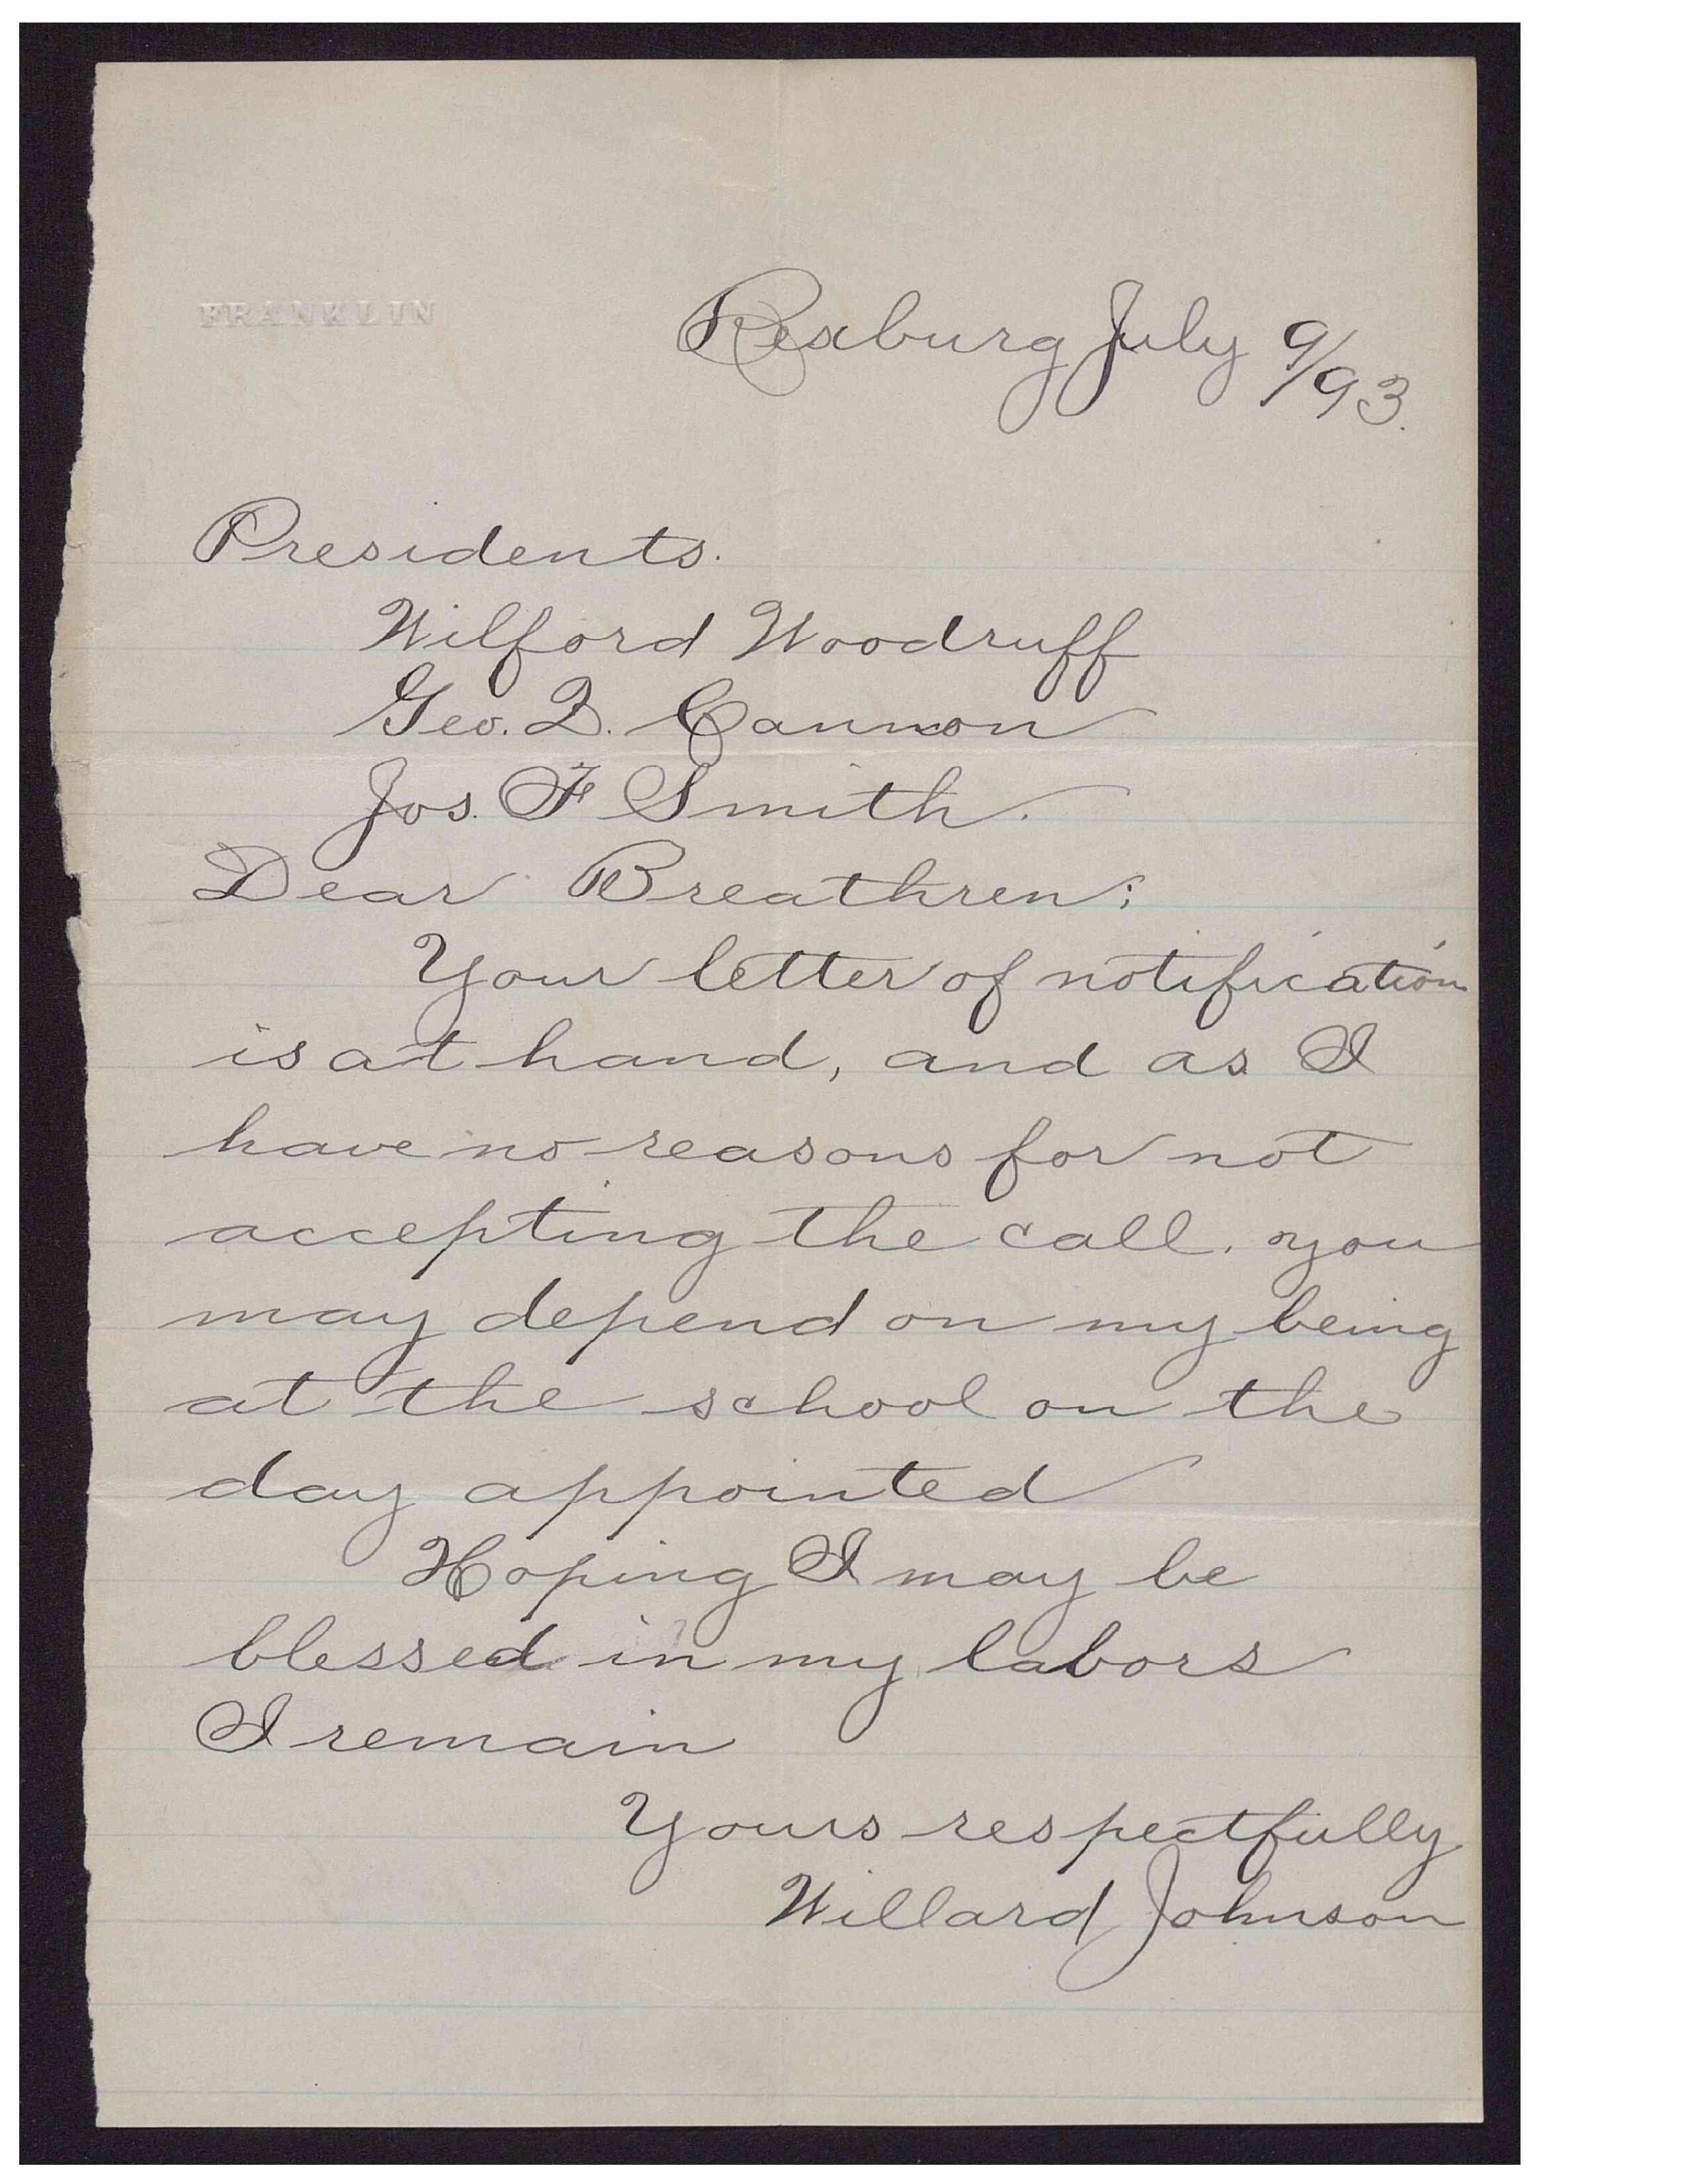 FRANKLIN
Rexburg July 9/93.
Presidents.
Wilford Woodruff
Geo. Q. Cannon
Jos. F Smith.
Dear Breathren;
Your letter of notification
is at hand, and as I
have no reasons for not
accepting the call. you
may depend on my being
at the school on the
day appointed
Hoping I may be
blessed in my labors
I remain
Yours respectfully
Willard Johnson